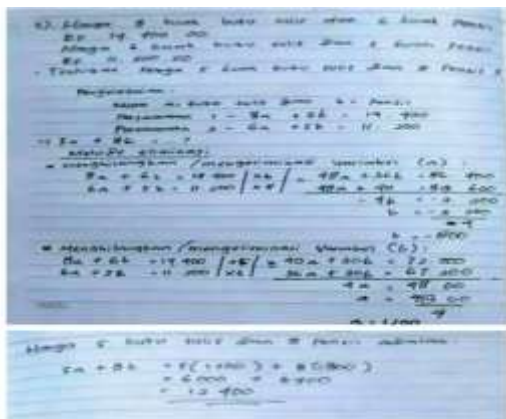 Harga 8 buah buku tulis dan 6 buah Pensil
Rp 14 400 00
Harga 6 buah buku tulis dan 5 buah Pensil
Rp 11 200 00
- Tentukan harga 5 buah buku tulis dan 8 Pensil ?
Penyelesaian :
a. buku tulis dan b = Pensil
Persamaan 1 = 8a + 6b = 14 400
Persamaan 2 = 6a + 5b = 11 200
5a + 8b = ?
Metode eliminasi
* Menghilangkan / mengeliminasi variabel (a) :
8a + 6b = 14 400 | x6 | = 48a + 36b = 86 400
6a + 5b = 11 200 | x8 | 48a + 40 = 89 600
b = 800
* Menghilangkan / mengeliminasi variabel (b) :
8a + 6b = 14 400 | x5 | = 40a + 30b = 72 000
6a + 5b = 11 200 | x6 | 36a + 30b = 67 200
4a = 48 00
a = 48 00
4
a = 1200
Harga 5 buku tulis dan 8 Pensil adalah
5a + 8b = 5 (1200) + 8 (800)
= 6000 + 6400
= 12 400